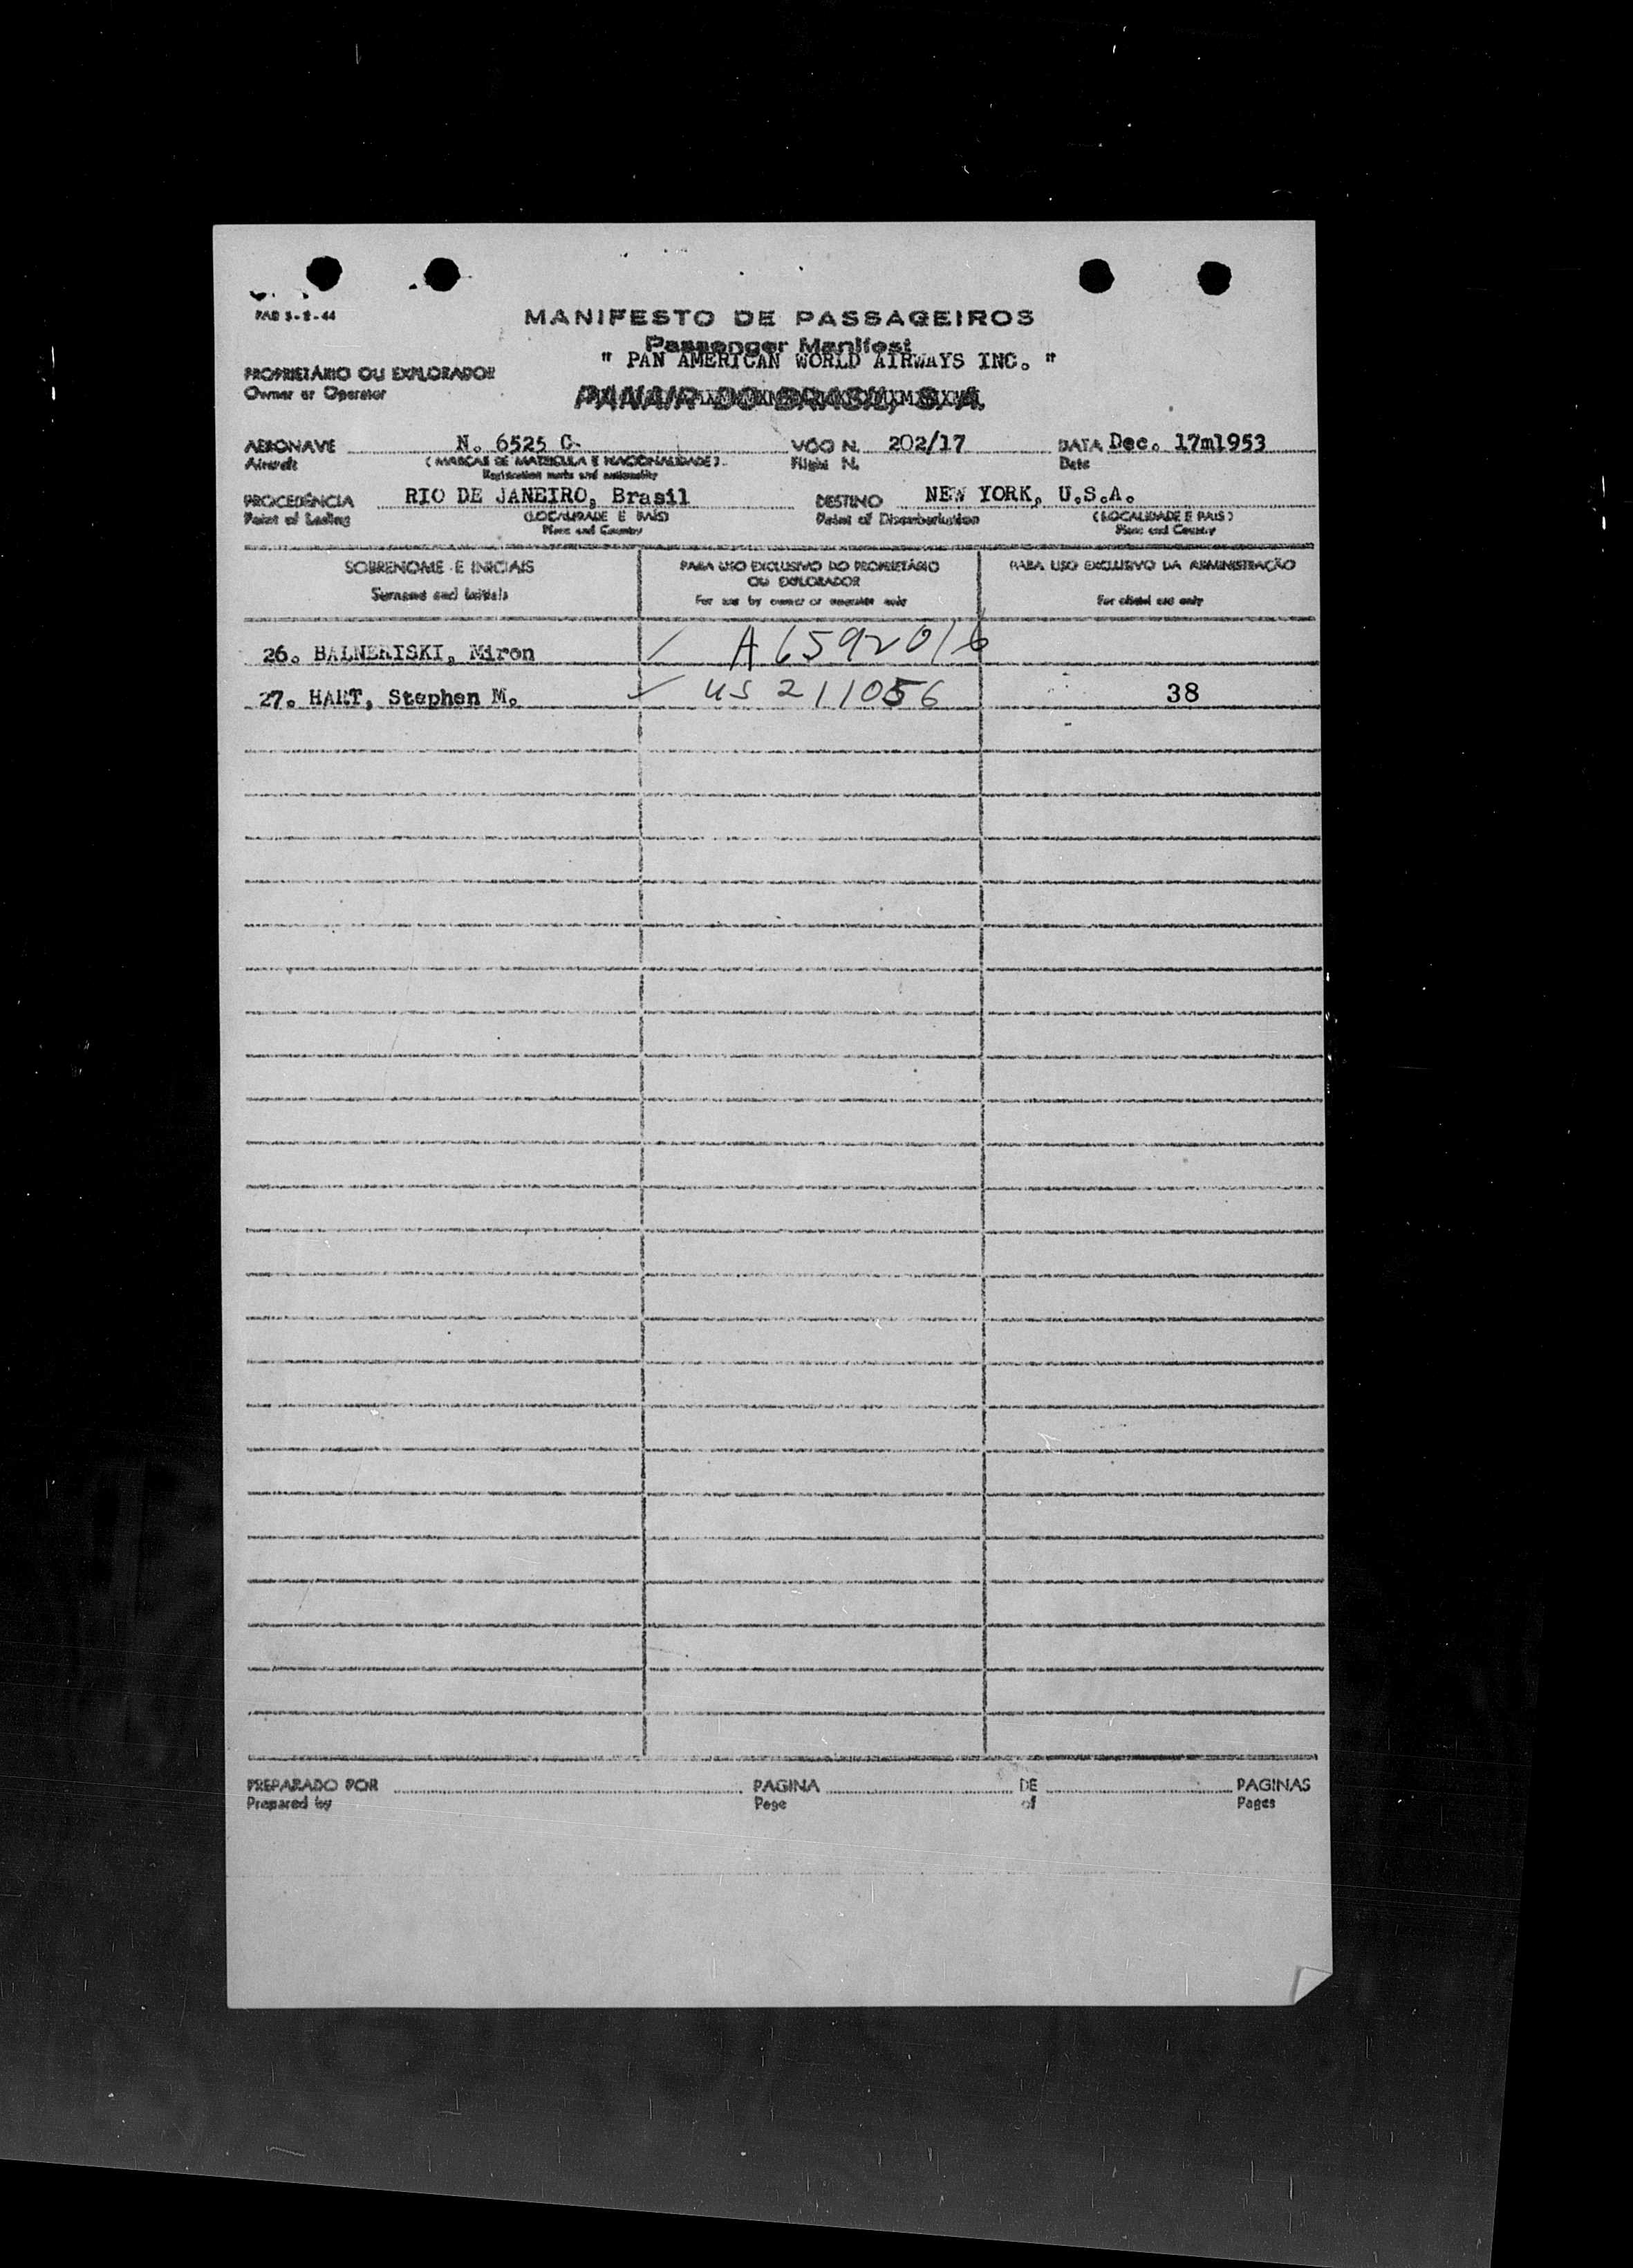 PAB 3-2-44
MANIFESTO DE PASSAGEIROS
Passenger Manifest
" PAN AMERICAN WORLD AIRWAYS INC. "
PROPRIETÁRIO OU EXPLORADOR
Owner or Operator
PANAIR DO BRASIL, S. A.
AERONAVE N. 6525 C. VÔO N. 202/17 DATA Dec. 17m1953
Aircraft (MARCAS DE MATRICULA E NACIONALIDADE) Flight N. Date
Registration marks and nationality
PROCEDÊNCIA RIO DE JANEIRO, Brasil DESTINO NEW YORK, U.S.A.
Point of Lading (LOCALIDADE E PAÍS) Point of Disembarkation (LOCALIDADE E PAÍS)
Place and Country Place and Country
SOBRENOME E INICIAIS PARA USO EXCLUSIVO DO PROPRIETÁRIO PARA USO EXCLUSIVO DA ADMINISTRAÇÃO
OU EXPLORADOR
Surname and initials For use by owner or operator only For official use only
26. BALNERISKI, Miron A 6592016
27. HART, Stephen M. US 211056 38
PREPARADO POR PAGINA DE PAGINAS
Prepared by Page of Pages